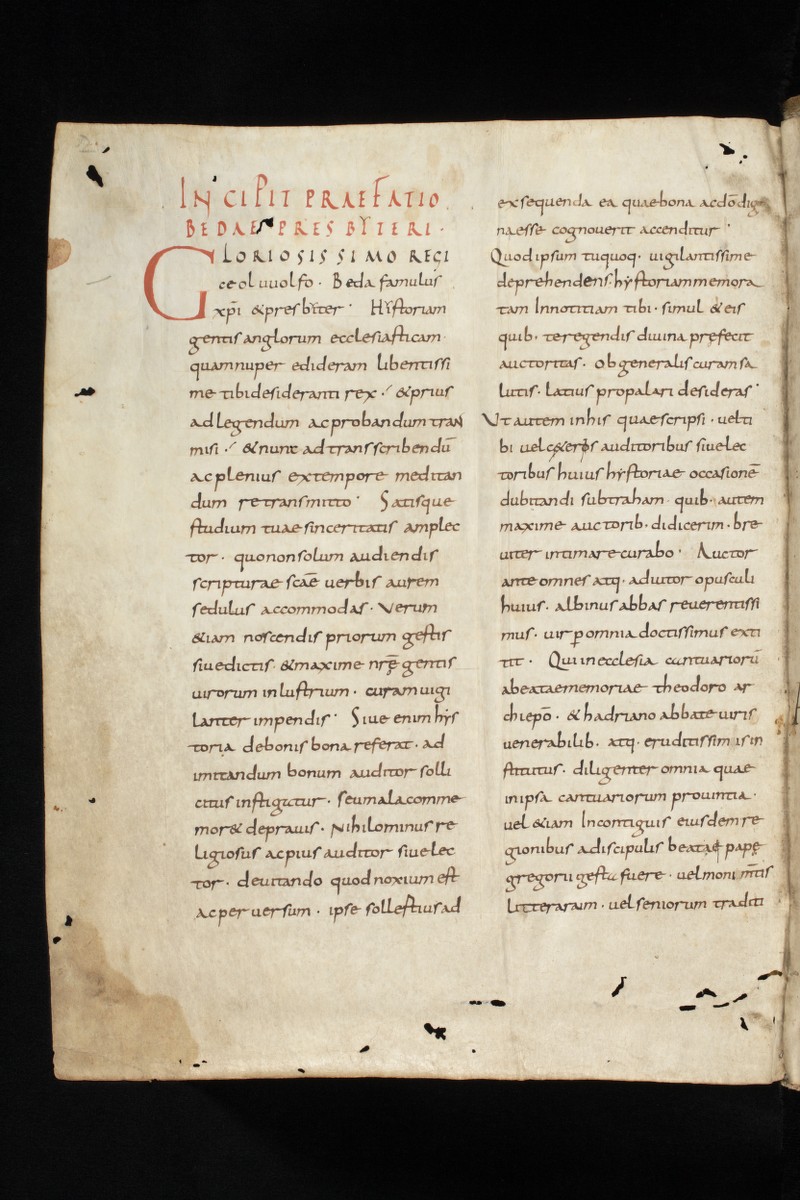 INCIPIT PRAEFATIO
BEDAE PRESBYTERI ·
GLORIOSISSIMO REGI
ceoluuolfo · Beda famulus
xp̄i &presbẏter · Hẏstoriam
gentis anglorum ecclesiasticam
quamnuper edideram libentissi
me tibidesideranti rex · &prius
adlegendum acprobandum tran
misi · &nunc adtransscribendū
acplenius extempore meditan
dum retransmitto · Satisque
studium tuaesinceritatis amplec
tor · quononsolum audiendis
scripturae scāe uerbis aurem
sedulus accommodas · Verum
&iam noscendis priorum gestis
siuedictis · &maxime nrę̄ gentis
uirorum inlustrium · curamuigi
lanter impendis · Siue enim hẏs
toria debonis bona referat · ad
imitandum bonum auditor solli
citus instigatur · seumalacomme
mor& deprauis · Nihilominus re
ligiosus acpius auditor siuelec
tor · deuitando quod noxium est
acperuersum · ipse sollestius ad
exsequenda ea quaebona acdō dig
naesse cognouerit accenditur ·
Quod ipsum tuquoq · uigilantissime
deprehendens · hẏstoriammemora
tam Innotitiam tibi · simul &eis
quib · teregendis diuina prefecit
auctoritas · Obgeneraliscuramsa
lutis · latius propalari desideras ·
Vt autem inhis quaescripsi · ueltı
bi uelc&eris auditoribus siuelec
toribus huius hẏstoriae occasionē
dubitandi subtraham · quib · autem
maxime auctorib · didicerim · bre
uiter intimarecurabo · Auctor
ante omnes atq · adiutor opusculi
huius · albinus abbas reuerentissi
mus · uir ꝑ omnia doctissimus exti
tit · Qui inecclesia cantuariorū
abeataememoriae theodoro ar
chiepō · &hadriano abbate uiris
uenerabilib · atq · eruditissimis in
stitutus · diligenter omnia quae
inipsa cantuariorum prouintia ·
uel &iam Incontiguis eiusdem re
gionibus adiscipulis beatae papę
gregorii gesta fuere · uelmonim̄tis
litteraraum · uel seniorum traditi